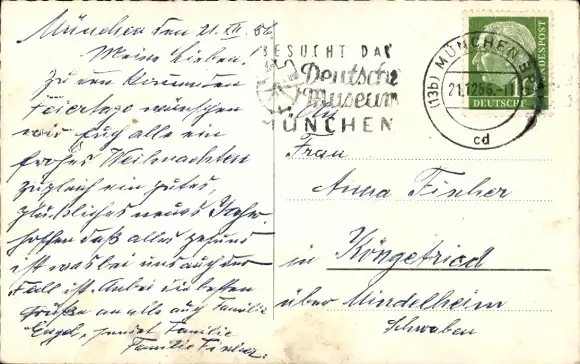 München den 21. XII. 56
Meine Lieben!
Zu den kommenden
Feiertage wünschen
wir Euch alle ein
frohes Weihnachten
zugleich ein gutes,
glückliches neues Jahr.
hoffen daß alles gesund
ist was bei uns auch der
Fall ist. Anbei die besten
Grüße an alle auch Familie
Engel, Familie
Familie Fischer.
BESUCHT DAS
Deutsche
Museum
MÜNCHEN
(13b) MÜNCHEN
21.12.56.-11
cd
BUNDESPOST
DEUTSCHE
An
Frau
Anna Fischer
in Köngetried
über Mindelheim
Schwaben